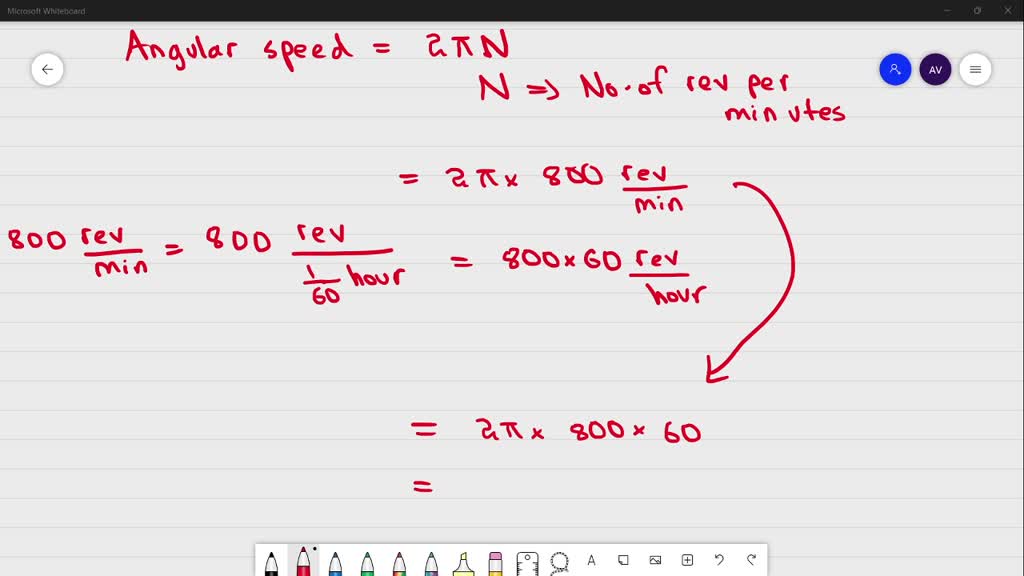 Microsoft Whiteboard
Angular speed = 2πN
N => No. of rev per
minutes
AV
= 2π × 800 rev/min
800 rev/min = 800 rev/(1/60 hour) = 800 × 60 rev/hour
= 2π × 800 × 60
=
A